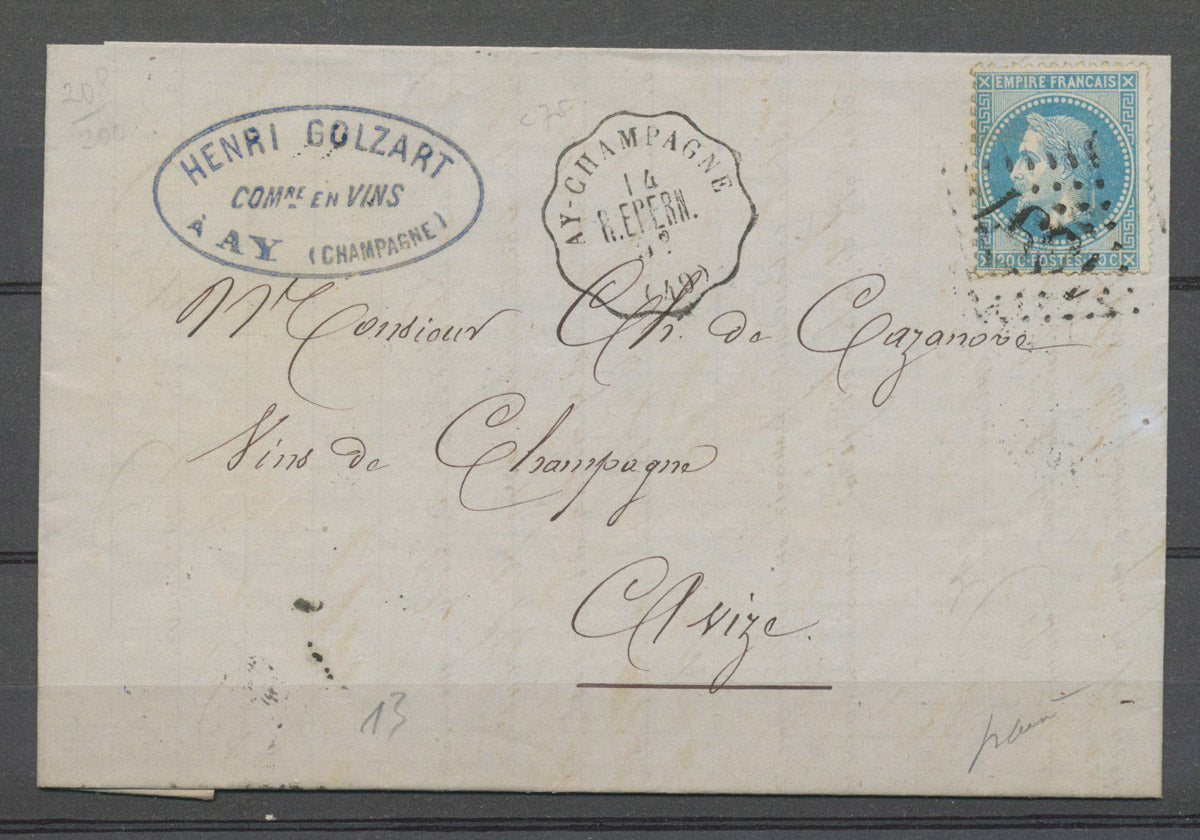 208
200
HENRI GOLZART
COMRE EN VINS
À AY (CHAMPAGNE)
AY-CHAMPAGNE
14
R.EPERN.
(49)
EMPIRE FRANÇAIS
20 C. POSTES 20 C.
Monsieur Ch. de Cazanove
Vins de Champagne
Avize.
13